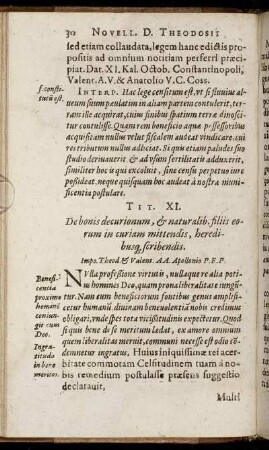 30 NOVELL. D. THEODOSII
sed etiam collaudata, legem hanc edictis pro-
positis ad omnium notitiam perferri præci-
piat. Dat. XI. Kal. Octob. Constantinopoli,
Valent. A. V. & Anatolio V. C. Coss.
INTERP. Hac lege censitum est, vt si fluuius al-
ueum suum paulatim in aliam partem contulerit, ter-
ram ille acquirat, cuius finibus spatium terræ dinosci-
tur contulisse. Quam rem beneficio aquæ possessoribus
acquisitam nullus velut fiscalem audeat vindicare, aut
ei retributum nullus adiectat. Si quæ etiam paludes suo
studio deriuauerit & ad vsum fertilitatis adduxerit,
similiter hoc is qui excoluit, sine censu perpetuo iure
possideat, neque quisquam hoc audeat à nostra muni-
ficentia postulare.
s. consti-
tutū est.
TIT. XI.
De bonis decurionum, & naturalib. filiis eo-
rum in curiam mittendis, heredi-
busq; scribendis.
Impp. Theod. & Valent. AA. Apollonio P. F. P.
Benefi-
centia
proxime
homines
coniun-
git cum
Deo.
NVlla professione virtutis, nullaque re alia poti-
us hominis Deo, quam prona liberalitate iungun-
tur. Nam cum beneficiorum fontibus genus amplifice-
tur humanū diuinam beneuolentiā nobis credimus
obligari, vnde spes tota vicissitudinis expectatur. Quod
si quis bene de se meritum lædat, ex amore omnium
quem liberalitas meruit, communi necesse est odio cō-
demnetur ingratus, Huius iniquissimæ rei acer-
bitate commotam Celsitudinem tuam à no-
bis remedium postulasse præsens suggestio
declarauit,
Ingra-
titudo
in bene
meritos.
Mulcti